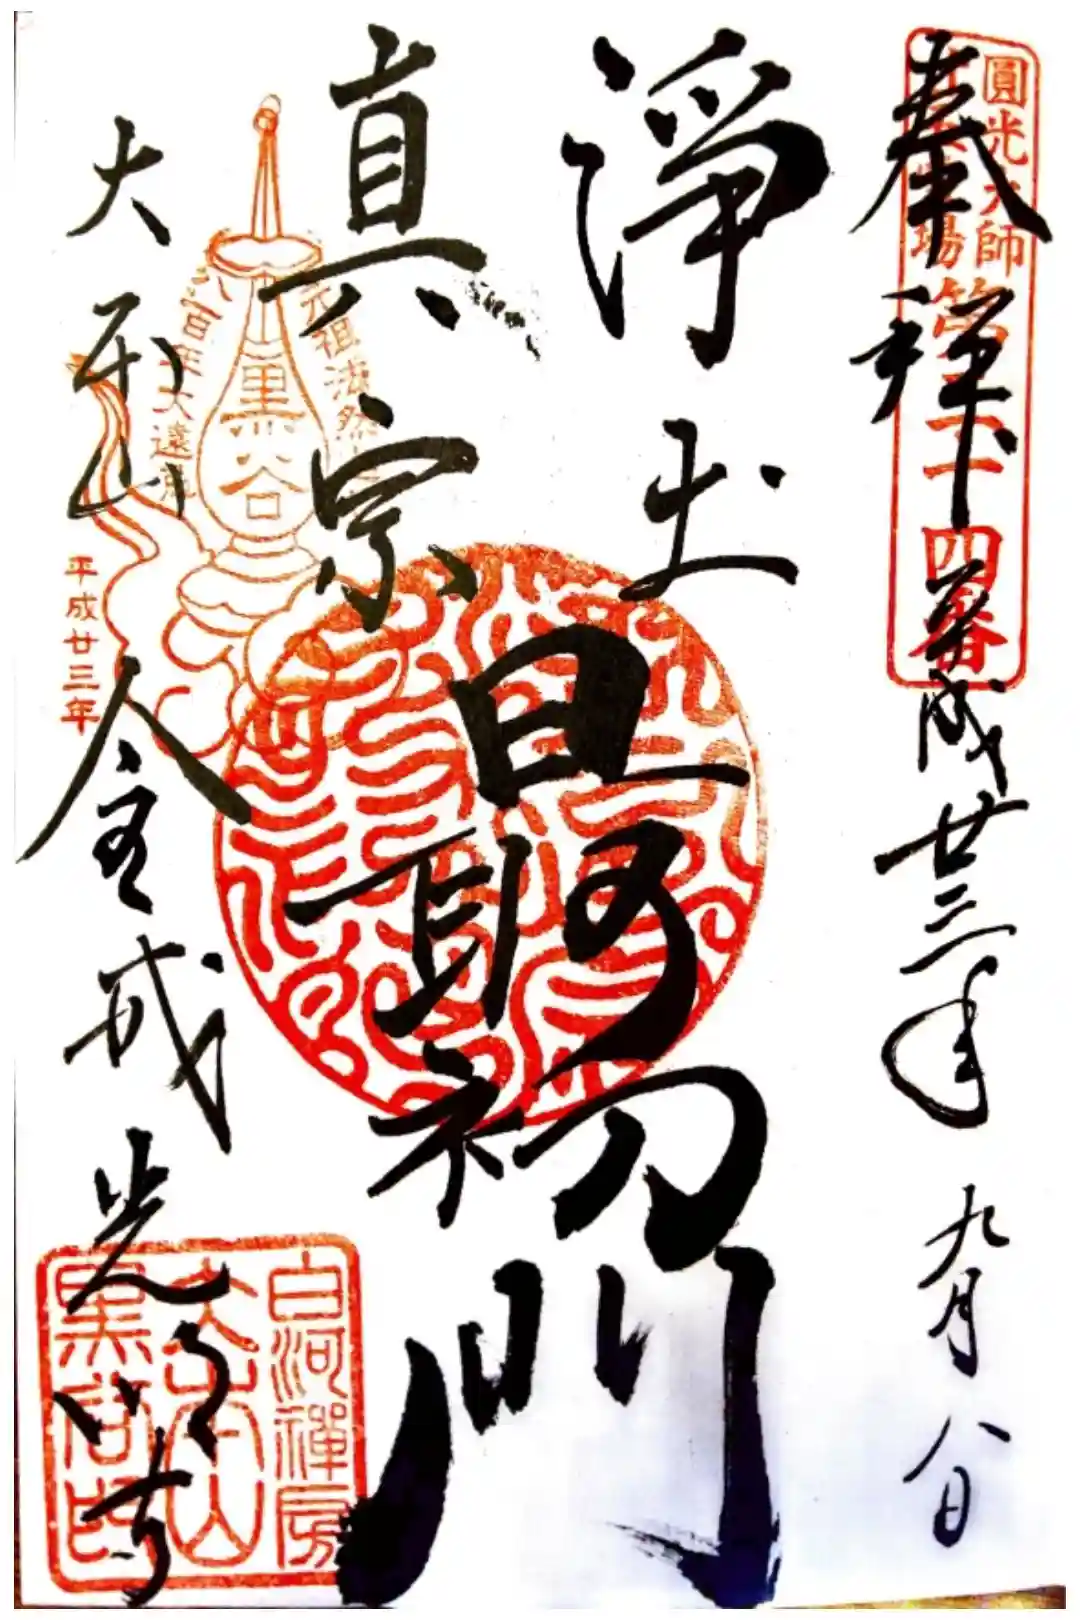 奉拝
平成廿三年九月八日
圓光大師
第二十四番
淨土
真宗
最初門
元祖法然
八百年大遠忌
黒谷
平成廿三年
大本山
金戒光明寺
白河禪房
大本山
黒谷